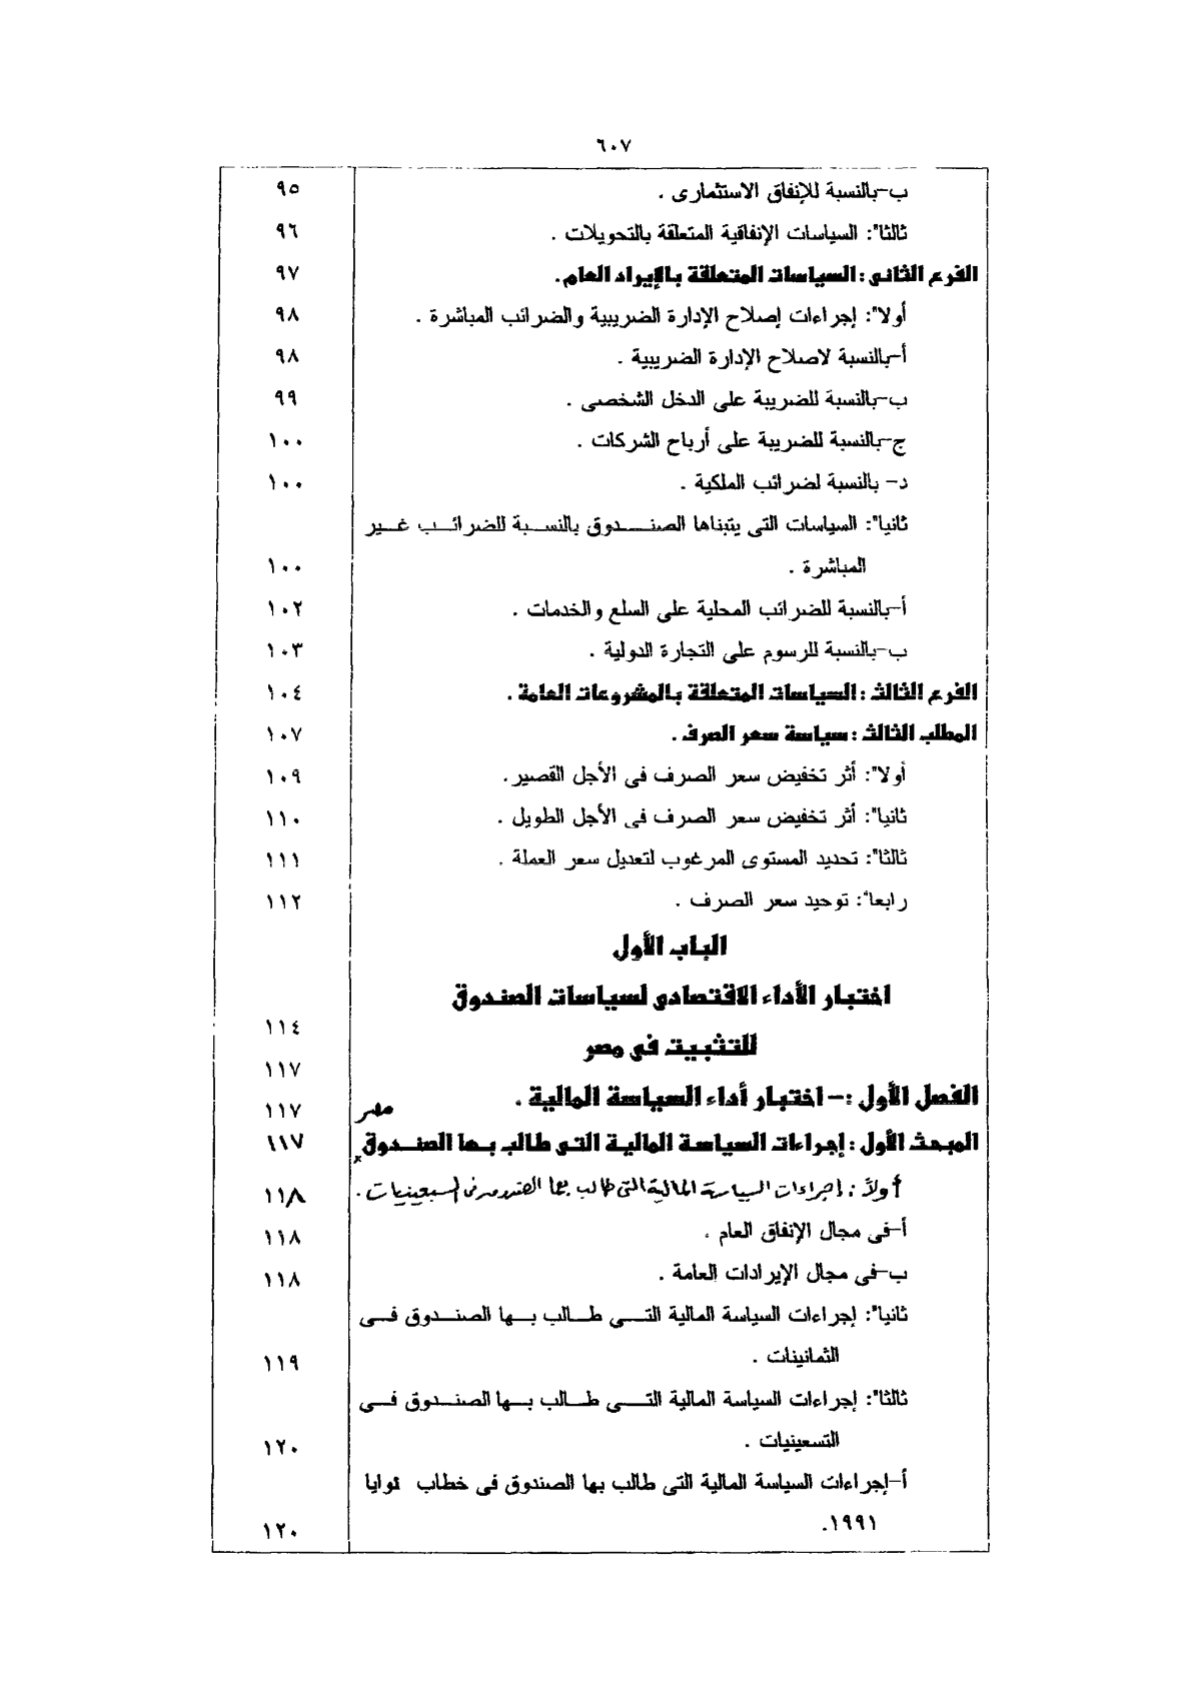 ٦٠٧
ب-بالنسبة للإنفاق الاستثمارى . ٩٥
ثالثا": السياسات الإنفاقية المتعلقة بالتحويلات . ٩٦
الفرع الثانى : السياسات المتعلقة بالإيراد العام. ٩٧
أولا": إجراءات إصلاح الإدارة الضريبية والضرائب المباشرة . ٩٨
أ-بالنسبة لاصلاح الإدارة الضريبية . ٩٨
ب-بالنسبة للضريبة على الدخل الشخصى . ٩٩
ج-بالنسبة للضريبة على أرباح الشركات . ١٠٠
د- بالنسبة لضرائب الملكية . ١٠٠
ثانيا": السياسات التى يتبناها الصندوق بالنسبة للضرائب غير
المباشرة . ١٠٠
أ-بالنسبة للضرائب المحلية على السلع والخدمات . ١٠٢
ب-بالنسبة للرسوم على التجارة الدولية . ١٠٣
الفرع الثالث : السياسات المتعلقة بالمشروعات العامة . ١٠٤
المطلب الثالث : سياسة سعر الصرف . ١٠٧
أولا": أثر تخفيض سعر الصرف فى الأجل القصير. ١٠٩
ثانيا": أثر تخفيض سعر الصرف فى الأجل الطويل . ١١٠
ثالثا": تحديد المستوى المرغوب لتعديل سعر العملة . ١١١
رابعا": توحيد سعر الصرف . ١١٢
الباب الأول
اختبار الأداء الاقتصادى لسياسات الصندوق
١١٤
للتثبيت فى مصر
١١٧
الفصل الأول :- اختبار أداء السياسة المالية .
مصر ١١٧
المبحث الأول : إجراءات السياسة المالية التى طالب بها الصندوق ١١٧
أولاً : إجراءات السياسة المالية التى طالب بها الصندوق فى السبعينيات . ١١٨
أ-فى مجال الإنفاق العام . ١١٨
ب-فى مجال الإيرادات العامة . ١١٨
ثانيا": إجراءات السياسة المالية التى طالب بها الصندوق فى
الثمانينات . ١١٩
ثالثا": إجراءات السياسة المالية التى طالب بها الصندوق فى
التسعينيات . ١٢٠
أ-إجراءات السياسة المالية التى طالب بها الصندوق فى خطاب نوايا
١٩٩١. ١٢٠